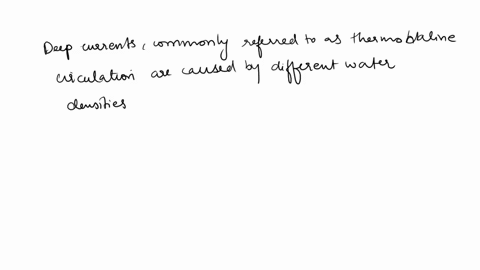 Deep currents, commonly referred to as thermohaline
circulation are caused by different water
densities